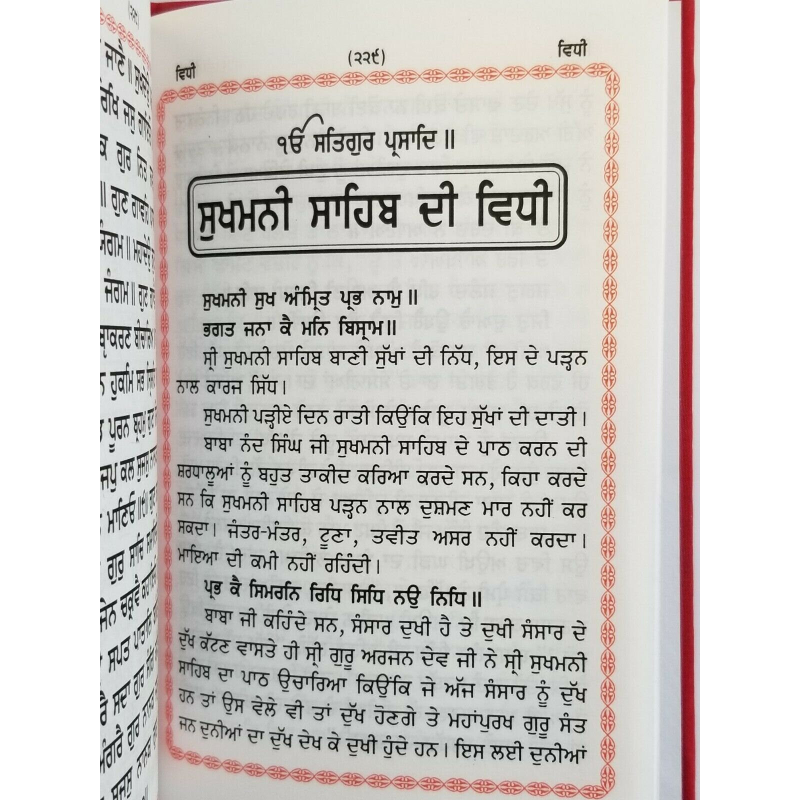 (੨੨੮)
ਜਾਣੈ॥
ਗੁਰ
ਗੁਣ
ਜੰਗਮ॥
ਹੁਕਮਿ ਸਭ
ਪੂਰਨ ਬ੍ਰਹਮੁ
ਗੁਰੁ
ਸਪਤ
ਸਦਾ ਗੁਰ
ਵਿਧੀ
(੨੨੯)
ਵਿਧੀ
ੴ ਸਤਿਗੁਰ ਪ੍ਰਸਾਦਿ॥
ਸੁਖਮਨੀ ਸਾਹਿਬ ਦੀ ਵਿਧੀ
ਸੁਖਮਨੀ ਸੁਖ ਅੰਮ੍ਰਿਤ ਪ੍ਰਭ ਨਾਮੁ॥
ਭਗਤ ਜਨਾ ਕੈ ਮਨਿ ਬਿਸ੍ਰਾਮ॥
ਸ੍ਰੀ ਸੁਖਮਨੀ ਸਾਹਿਬ ਬਾਣੀ ਸੁੱਖਾਂ ਦੀ ਨਿੱਧ, ਇਸ ਦੇ ਪੜ੍ਹਨ
ਨਾਲ ਕਾਰਜ ਸਿੱਧ।
ਸੁਖਮਨੀ ਪੜ੍ਹੀਏ ਦਿਨ ਰਾਤੀ ਕਿਉਂਕਿ ਇਹ ਸੁੱਖਾਂ ਦੀ ਦਾਤੀ।
ਬਾਬਾ ਨੰਦ ਸਿੰਘ ਜੀ ਸੁਖਮਨੀ ਸਾਹਿਬ ਦੇ ਪਾਠ ਕਰਨ ਦੀ
ਸ਼ਰਧਾਲੂਆਂ ਨੂੰ ਬਹੁਤ ਤਾਕੀਦ ਕਰਿਆ ਕਰਦੇ ਸਨ, ਕਿਹਾ ਕਰਦੇ
ਸਨ ਕਿ ਸੁਖਮਨੀ ਸਾਹਿਬ ਪੜ੍ਹਨ ਨਾਲ ਦੁਸ਼ਮਣ ਮਾਰ ਨਹੀਂ ਕਰ
ਸਕਦਾ। ਜੰਤਰ-ਮੰਤਰ, ਟੂਣਾ, ਤਵੀਤ ਅਸਰ ਨਹੀਂ ਕਰਦਾ।
ਮਾਇਆ ਦੀ ਕਮੀ ਨਹੀਂ ਰਹਿੰਦੀ।
ਪ੍ਰਭ ਕੈ ਸਿਮਰਨਿ ਰਿਧਿ ਸਿਧਿ ਨਉ ਨਿਧਿ॥
ਬਾਬਾ ਜੀ ਕਹਿੰਦੇ ਸਨ, ਸੰਸਾਰ ਦੁਖੀ ਹੈ ਤੇ ਦੁਖੀ ਸੰਸਾਰ ਦੇ
ਦੁੱਖ ਕੱਟਣ ਵਾਸਤੇ ਹੀ ਸ੍ਰੀ ਗੁਰੂ ਅਰਜਨ ਦੇਵ ਜੀ ਨੇ ਸ੍ਰੀ ਸੁਖਮਨੀ
ਸਾਹਿਬ ਦਾ ਪਾਠ ਉਚਾਰਿਆ ਕਿਉਂਕਿ ਜੇ ਅੱਜ ਸੰਸਾਰ ਨੂੰ ਦੁੱਖ
ਹਨ ਤਾਂ ਉਸ ਵੇਲੇ ਵੀ ਤਾਂ ਦੁੱਖ ਹੋਣਗੇ ਤੇ ਮਹਾਂਪੁਰਖ ਗੁਰੂ ਸੰਤ
ਜਨ ਦੁਨੀਆਂ ਦਾ ਦੁੱਖ ਦੇਖ ਕੇ ਦੁਖੀ ਹੁੰਦੇ ਹਨ। ਇਸ ਲਈ ਦੁਨੀਆਂ